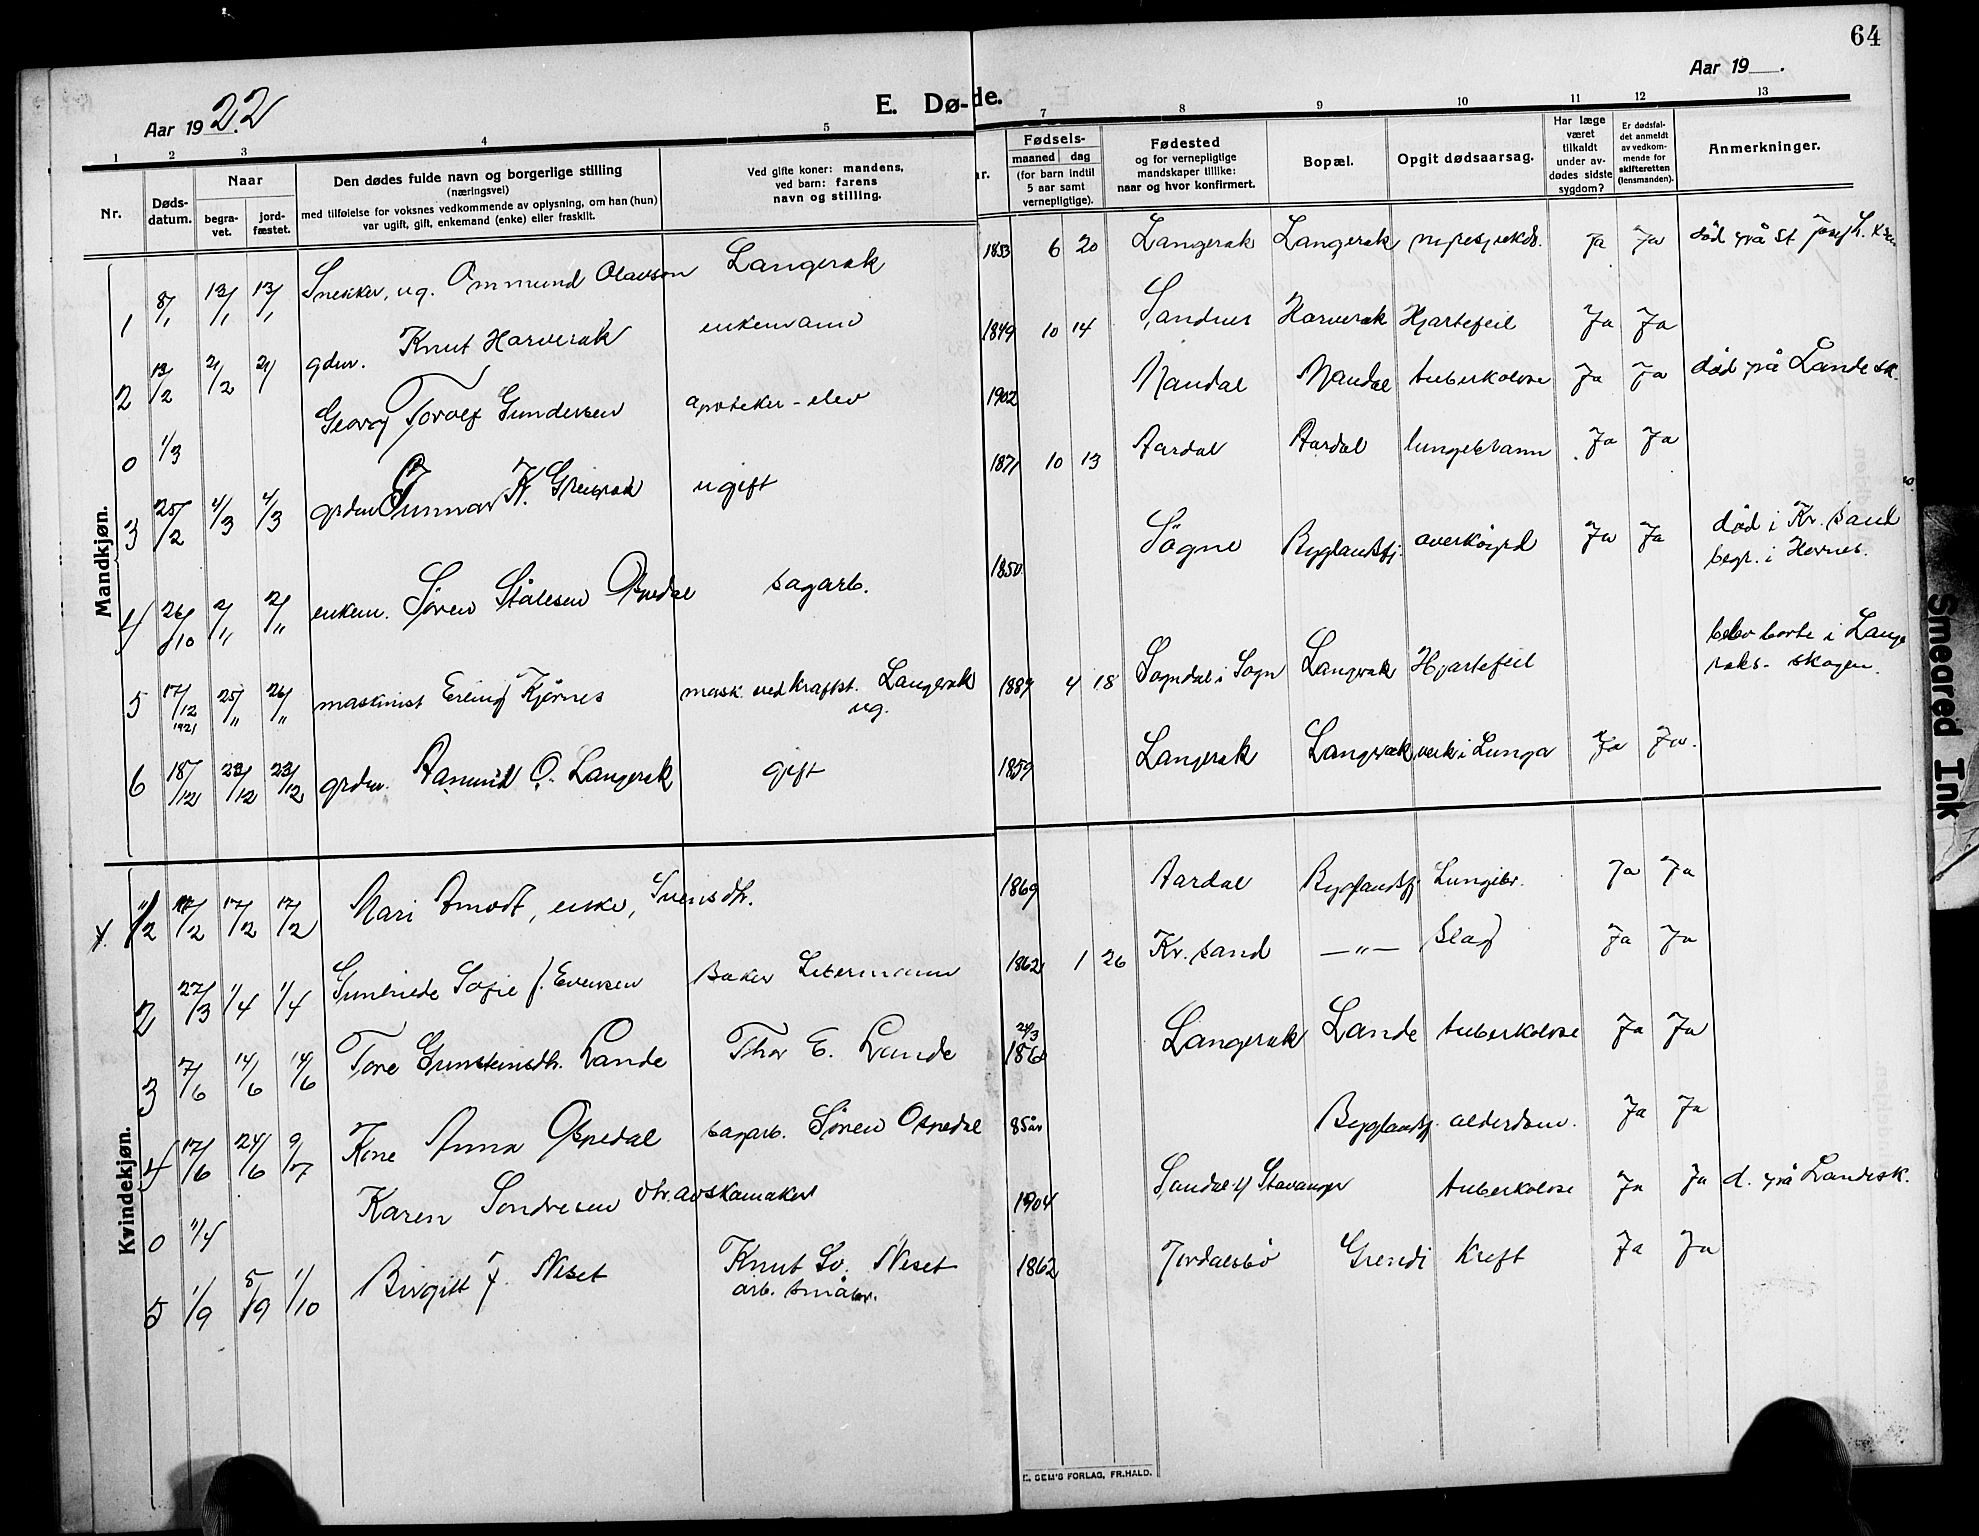 64
Aar 1922.
E. Dø-de.
Aar 19 .
1 2 3 4 5 7 8 9 10 11 12 13
Nr.
Døds-
datum.
Naar
begra-
vet.
jord-
fæstet.
Den dødes fulde navn og borgerlige stilling
(næringsvei)
med tilføielse for voksnes vedkommende av oplysning, om han (hun)
var ugift, gift, enkemand (enke) eller fraskilt.
Ved gifte koner: mandens,
ved barn: farens
navn og stilling.
Fødsels-
maaned dag
(for barn indtil
5 aar samt
vernepligtige).
Fødested
og for vernepligtige
mandskaper tillike:
naar og hvor konfirmert.
Bopæl.
Opgit dødsaarsag.
Har læge
været
tilkaldt
under av-
dødes sidste
sygdom?
Er dødsfal-
det anmeldt
av vedkom-
mende for
skifteretten
(lensmanden).
Anmerkninger.
Mandkjøn.
1 8/1 13/1 13/1 Snekker, ug. Ommund Olavson Langerak 1853 6 20 Langerak Langerak Ja Ja død på St Joseph. Krsd
2 13/2 21/2 21/ gdm. Knut Harverak enkemand 1849 10 14 Sandnes Harverak Hjartefeil Ja Ja
0 1/3 Georg Torolf Gundersen apoteker-elev 1902 Mandal Mandal tuberkolose Ja Ja død på Landesk.
3 25/2 4/3 4/3 grdm Gunnar K. ugift 1871 10 13 Aardal Aardal lungebrann Ja Ja
4 26/10 2/11 2/11 enkem. Søren Stålesen Ospedal sagarb. 1850 Søgne Byglandsfj. overkøyrd Ja Ja død i Kr.sand
begr. i Hornes.
5 17/12 1921 25/11 26/11 maskinist Erling Kjørnes mask ved Kraftst. Langerak
ug. 1889 4 18 Sogndal i Sogn Langerak Hjartefeil blev borte i Lange
raks-skogen.
6 18/12 23/12 23/12 grdm. Aanund O. Langerak gift 1859 Langerak Langerak verk i Lunga Ja Ja.
Kvindekjøn.
1 11/2 17/2 17/2 17/2 Mari Amodt, enke, Svensdtr. 1869 Aardal Byglandsfj Lungebr. Ja Ja
2 27/3 1/4 1/4 Gunhilde Sofie f. Evensen Baker Litermann 1862 1 26 Kr.sand —"— Slag Ja Ja
3 7/6 14/6 14/6 Tore Gunsteinsdtr. Lande Thor E. Lande 24/3 1860 Langerak Lande tuberkolose Ja Ja
4 17/6 24/6 9/7 Kone Anna Ospedal sagarb. Søren Ospedal 85 år Byglandsfj. alderdom. Ja Ja
0 11/4 Karen Sondresen dtr. av skomaker 1904 Stavanger tuberkolose Ja Ja d. på Landesk.
5 1/9 5/9 1/10 Birgitt f. Neset Knut Sv. Neset
arb. småbr. 1862 Jordalsbø Grendi Kreft Ja Ja
E. SEM'S FORLAG, FR.HALD.
Smeared Ink